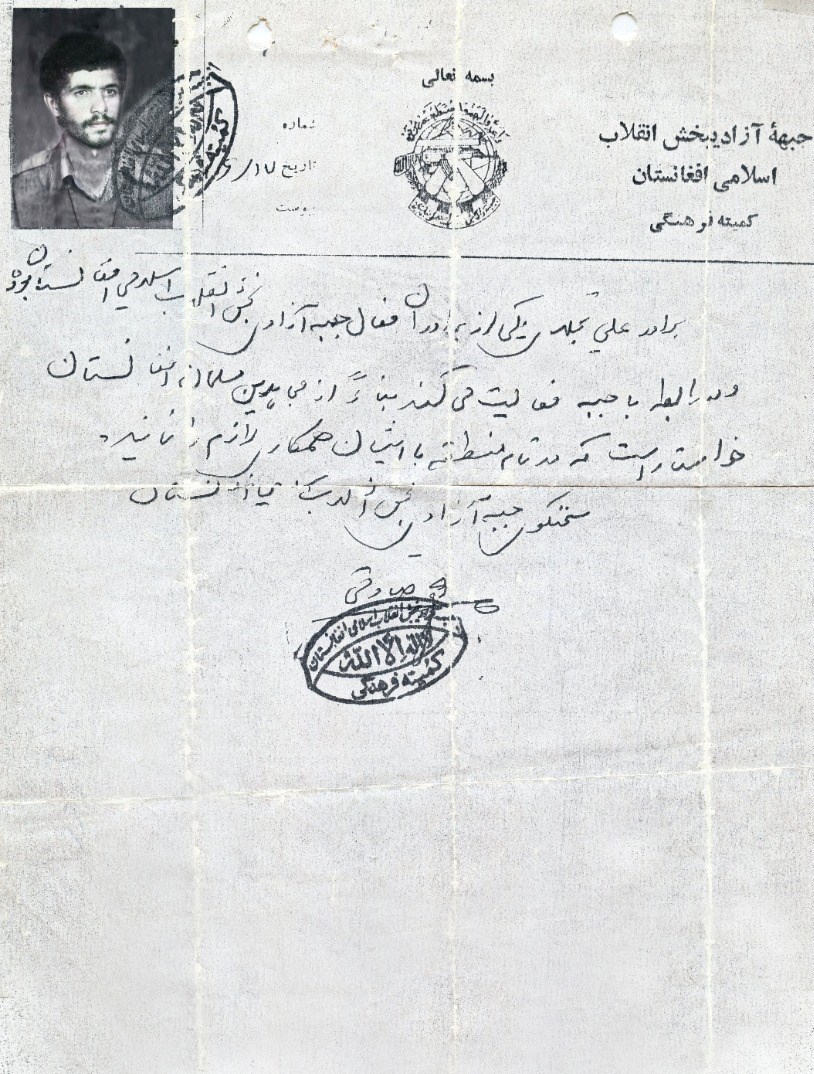 بسمه تعالی
جبههٔ آزادیبخش انقلاب
اسلامی افغانستان
کمیته فرهنگی
شماره
تاریخ ۱۷/
پیوست
برادر علی تجلی یکی از برادران فعال جبهه آزادی بخش انقلاب اسلامی افغانستان بوده
و در رابطه با جبهه فعالیت می کند بناءً از مجاهدین مسلمان افغانستان
خواستار است که در تمام منطقه با ایشان همکاری لازم را نمایند
سخنگوی جبهه آزادی بخش انقلاب اسلامی افغانستان
صادقی
جبهه آزادیبخش انقلاب اسلامی افغانستان
لا اله الا الله
کمیته فرهنگی